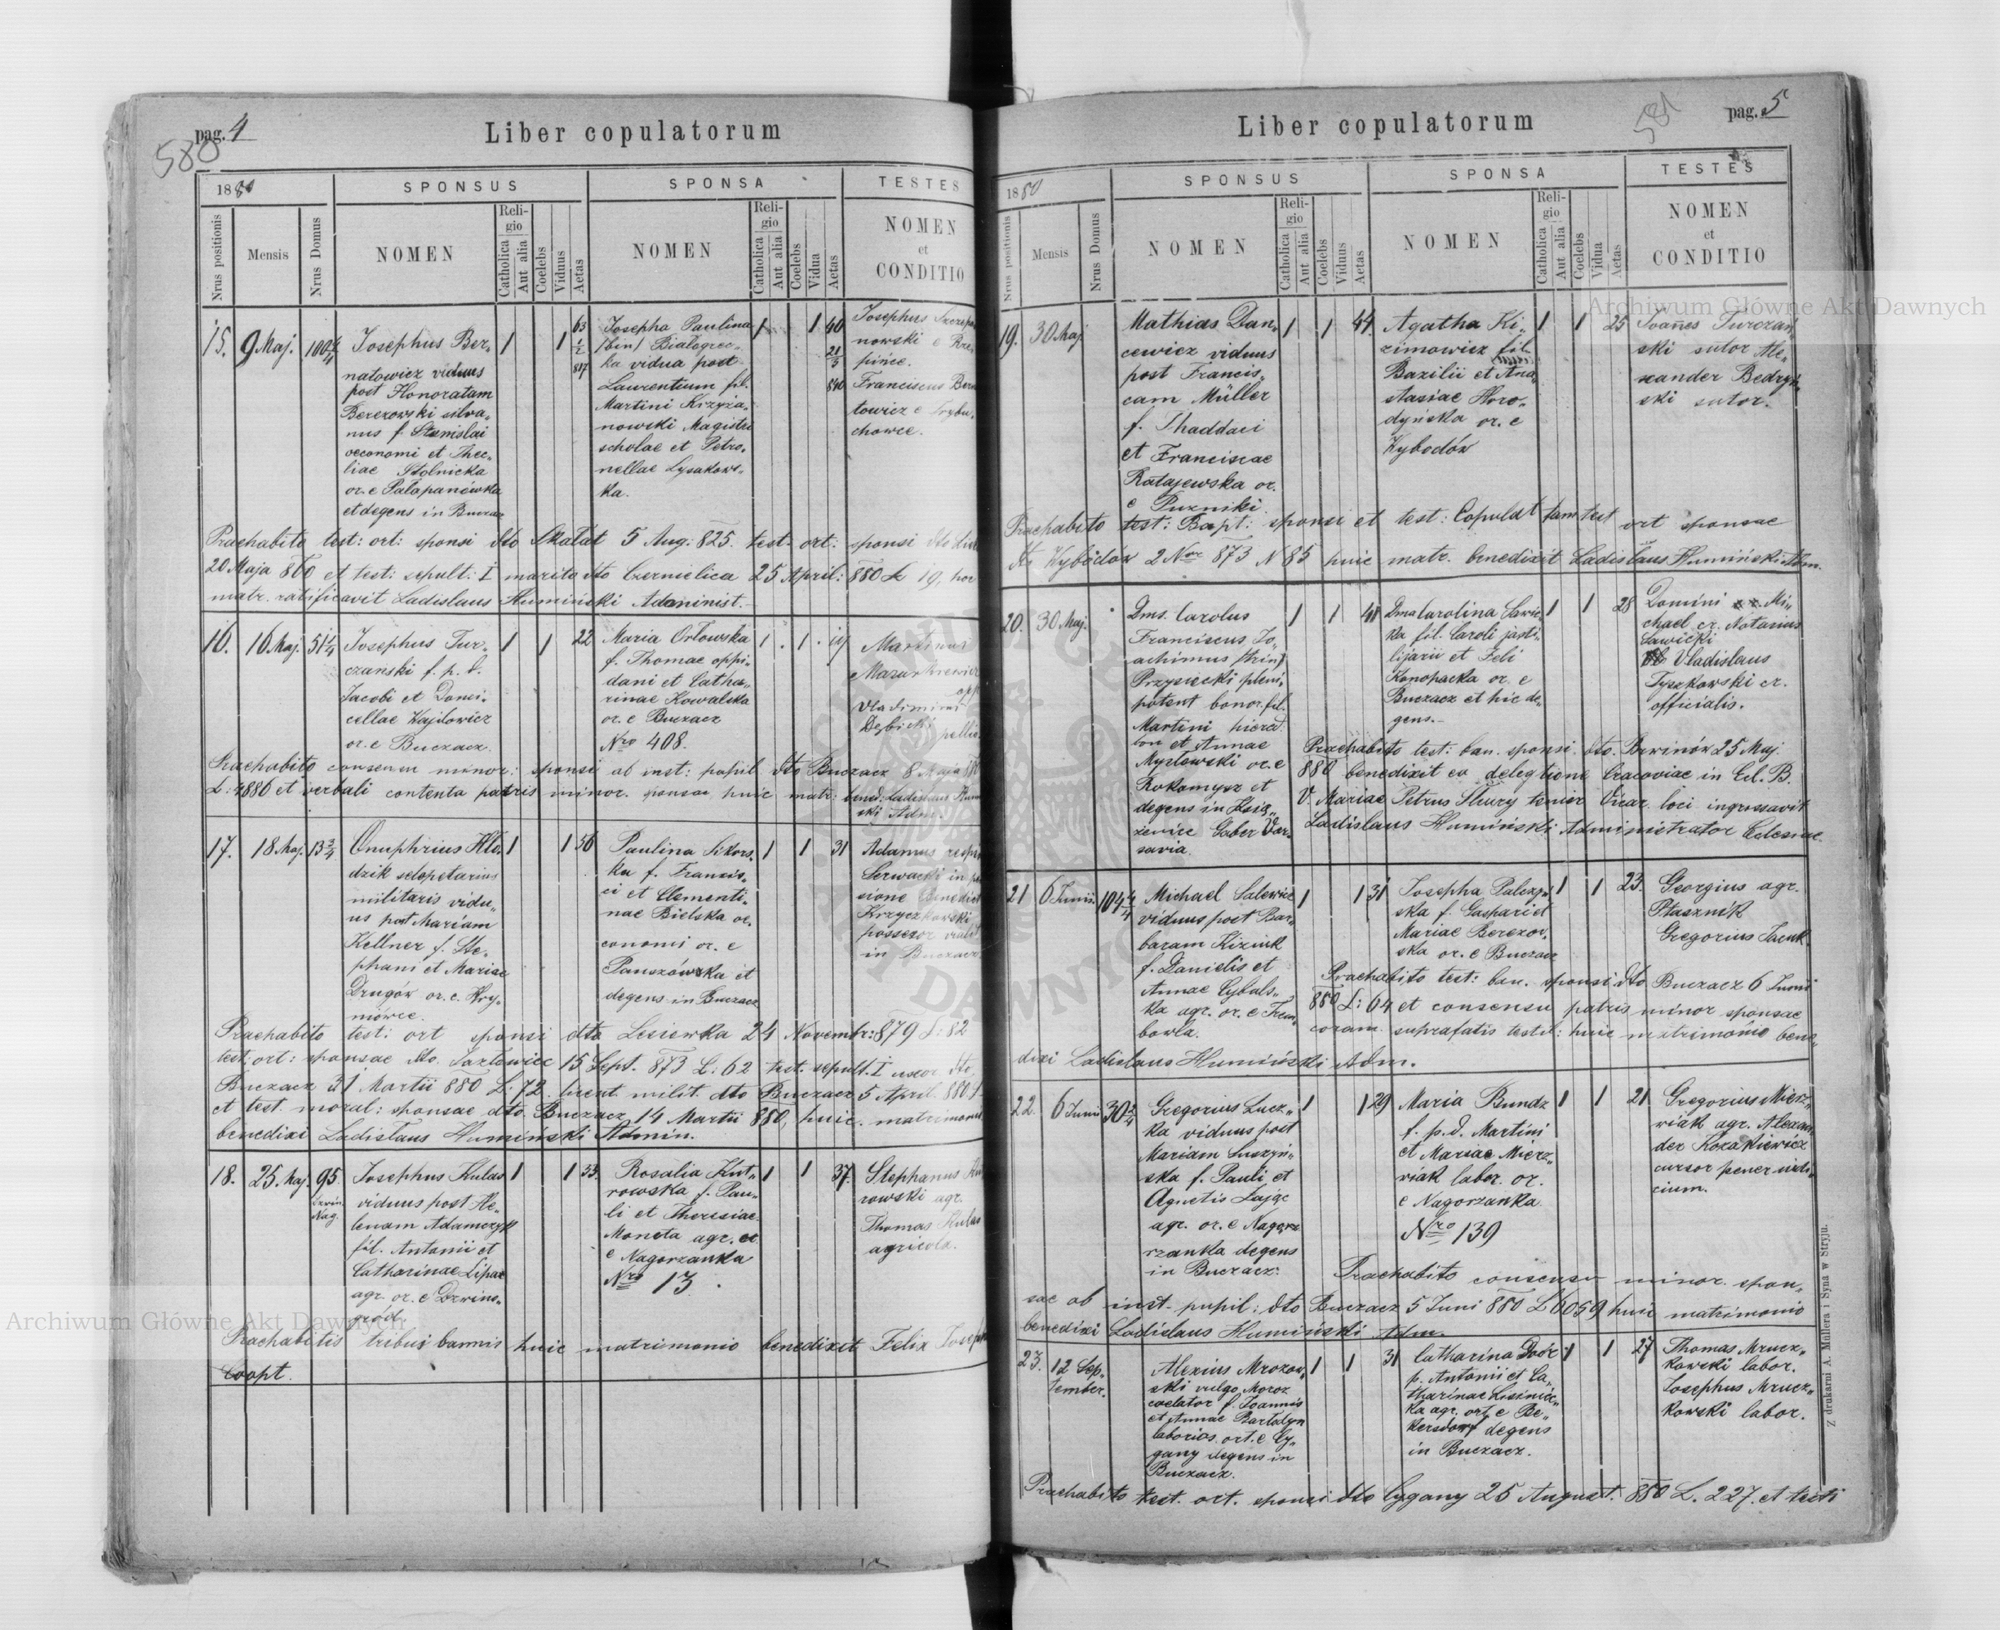 pag. 4
580
Liber copulatorum
1880
SPONSUS
SPONSA
TESTES
Nrus positionis
Mensis
Nrus Domus
NOMEN
Religio
Catholica
Aut alia
Coelebs
Viduus
Aetas
NOMEN
Religio
Catholica
Aut alia
Coelebs
Vidua
Aetas
NOMEN
et
CONDITIO
15. 9 Maj.
Josephus Ber-
natowicz viduus
post Honoratam
Berezowski silva-
nus f. Stanislai
oeconomi et Thec-
liae Stolnicka
or. e Palapanówka
et degens in Buczacz
1 1 63
Josepha Paulina
/bin/ Bialogrec-
ka vidua post
Laurentium fil.
Martini Krzyża-
nowski Magistri
scholae et Petro-
nellae Lysakows-
ka.
1 1 40
Josephus
nowski e
pince.
Franciscus
towicz e Trybu-
chowce.
Praehabito test: ort: sponsi dto Skałat 5 Aug: 825. test. ort: sponsi dto
20 Maja 860 et test: sepult: I marito dto Czernielica 25 April: 880 L 19, hoc
matr. ratificavit Ladislaus Humiński Administ.
16. 16 Maj. 51/4
Josephus Tur-
czanski f. p. d.
Jacobi et Dani-
cellae Kajdowicz
or. e Buczacz.
1 1 22
Maria Orłowska
f. Thomae oppi-
dani et Catha-
rinae Kowalska
or. e Buczacz
Nro 408.
1 1 19
Martinus
Mazurkiewicz
opp.
Vladimirus
Dębicki pellio
Praehabito consensu minor: sponsi ab inst: pupil dto Buczacz 8 Maja 880
L: 4886 et verbali contenta patris minor. sponsae huic matr: bened: Ladislaus Humiń-
ski Adm.
17. 18 Maj. 13 3/4
Onuphrius Hło-
dzik sclopetarius
militaris vidu-
us post Mariam
Kellner f. Ste-
phani et Mariae
Drugów or. e. Kry-
mowce.
1 1 56
Paulina Sikors-
ka f. Francis-
ci et Clementi-
nae Bielska oe-
conomi or. e
Pauszówka et
degens in Buczacz
1 1 31
Adamus
Serwacki in pen-
sione Benedict
Krzyczkowski
possesor
in Buczacz
Praehabito test: ort sponsi dto Lesiewka 24 Novembr: 879 L: 82
test: ort: sponsae dto. Jazłowiec 15 Sept. 873 L: 62 test. sepult. I uxor. dto
Buczacz 31 Martii 880 L: 72. licent. milit. dto Buczacz 5 April. 880 L
et test. moral: sponsae dto. Buczacz 14 Martii 880, huic. matrimonio
benedixi Ladislaus Humiński Admin.
18. 25 Maj. 95.
Nag.
Josephus Kulas
viduus post He-
lenam Adamczyk
fil. Antonii et
Catharinae Lipac
agr. or. e Dzwino-
gród
1 1 33.
Rosalia Kut-
rowska f. Pau-
li et Theresiae
Moneta agr. or
e Nagorzanka
Nro 13.
1 1 37.
Stephanus
rowski agr.
Thomas Kulas
agricola.
Praehabitis tribus bannis huic matrimonio benedixit Felix Joseph
Coopt.
pag. 5
581
Liber copulatorum
1880
SPONSUS
SPONSA
TESTES
Nrus positionis
Mensis
Nrus Domus
NOMEN
Religio
Catholica
Aut alia
Coelebs
Viduus
Aetas
NOMEN
Religio
Catholica
Aut alia
Coelebs
Vidua
Aetas
NOMEN
et
CONDITIO
19. 30 Maj.
Mathias Dan-
cewicz viduus
post Francis-
cam Müller
f. Thaddaei
et Franciscae
Ratajewska or.
e Puzniki.
1 1 44
Agatha Ki-
zimowicz fil.
Bazilii et Ana-
stasiae Horo-
dyńska or. e
Kybodów
1 1 25
Joañes Turczań-
ski sutor Ale-
xander Bedryń-
ski sutor.
Praehabito test: Bapt: sponsi et test: Copulat tam test ort sponsae
dto Kybódów 2 Nov 873 N 85 huic matr. benedixit Ladislaus Humiński Adm.
20. 30 Maj.
Dms. Carolus
Franciscus Jo-
achimus /trin/
Przysiecki pleni-
potent bonor. fil.
Martini
et Annae
Mysłowski or. e
Rokomysz et
degens in
Gober Var-
savia.
1 1 41
Dma Carolina Sawic-
ka fil. Caroli
et
Konopacka or. e
Buczacz et hic de-
gens.
1 1 28
Domini Mi-
chael cr. Notarius
Sawicki
Vladislaus
Tyszkowski cr.
officialis.
Praehabito test: ban. sponsi. dto. Brwinów 25 Maj
880 benedixit ex delegtione Cracoviae in Ecl. B.
V. Mariae Petrus Skury senior Vicar. loci ingrossavit
Ladislaus Humiński Administrator Eclesiae.
21 6 Junii. 104
Michael Salewicz
viduus post Bar-
baram Kiziuk
f. Danielis et
Annae Cybuls-
ka agr. or. e Trem-
bowla.
1 1 31
Josepha Paleszyń-
ska f. Gaspari et
Mariae Berezow-
ska or. e Buczacz
1 1 23.
Georgius agr.
Ptasznik
Gregorius Jacuk
Praehabito test: ban. sponsi dto Buczacz 6 Junii
880 L: 64 et consensu patris minor sponsae
coram suprafatis testib: huic matrimonio bene-
dixi Ladislaus Humiński Adm.
22. 6 Junii 30
Gregorius Łucz-
ka viduus post
Mariam Suszyń-
ska f. Pauli et
Agnetis Zając
agr. or. e Nago-
rzanka degens
in Buczacz.
1 1 29
Maria Bundz
f. p. d. Martini
et Mariae Mierz-
wiak labor. or.
e Nagorzanka
Nro 139
1 1 21
Gregorius Mierz-
wiak agr. Alexan-
der Kozakiewicz
cursor penes iudi-
cium.
Praehabito consensu minor. spon-
sae ab inst. pupil: dto Buczacz 5 Juni 880 L 6059 huic matrimonio
benedixi Ladislaus Humiński Adm.
23. 12 Sep-
tember.
Alexius Mrozow-
ski vulgo Moroz
coelator f. Joannis
et Annae Bartołyn
laborios. ort. e Cy-
gany degens in
Buczacz.
1 1 31
Catharina Doór
p. Antonii et Ca-
tharinae
ka agr. ort. e Be-
kersdorf degens
in Buczacz.
1 1 27
Thomas Mrucz-
kowski labor.
Josephus Mrucz-
kowski labor.
Praehabito test. ort. sponsi dto Cygany 25 August. 880 L. 227. et testi
Z drukarni A. Müllera i Syna w Stryju.
Archiwum Główne Akt Dawnych
Archiwum Główne Akt Dawnych